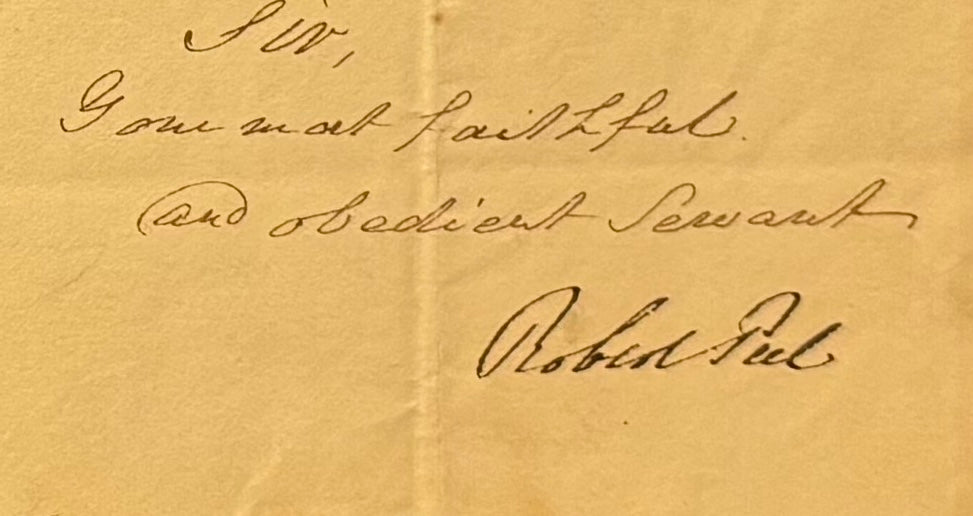 Sir,
Your most faithful
and obedient Servant,
Robert Peel